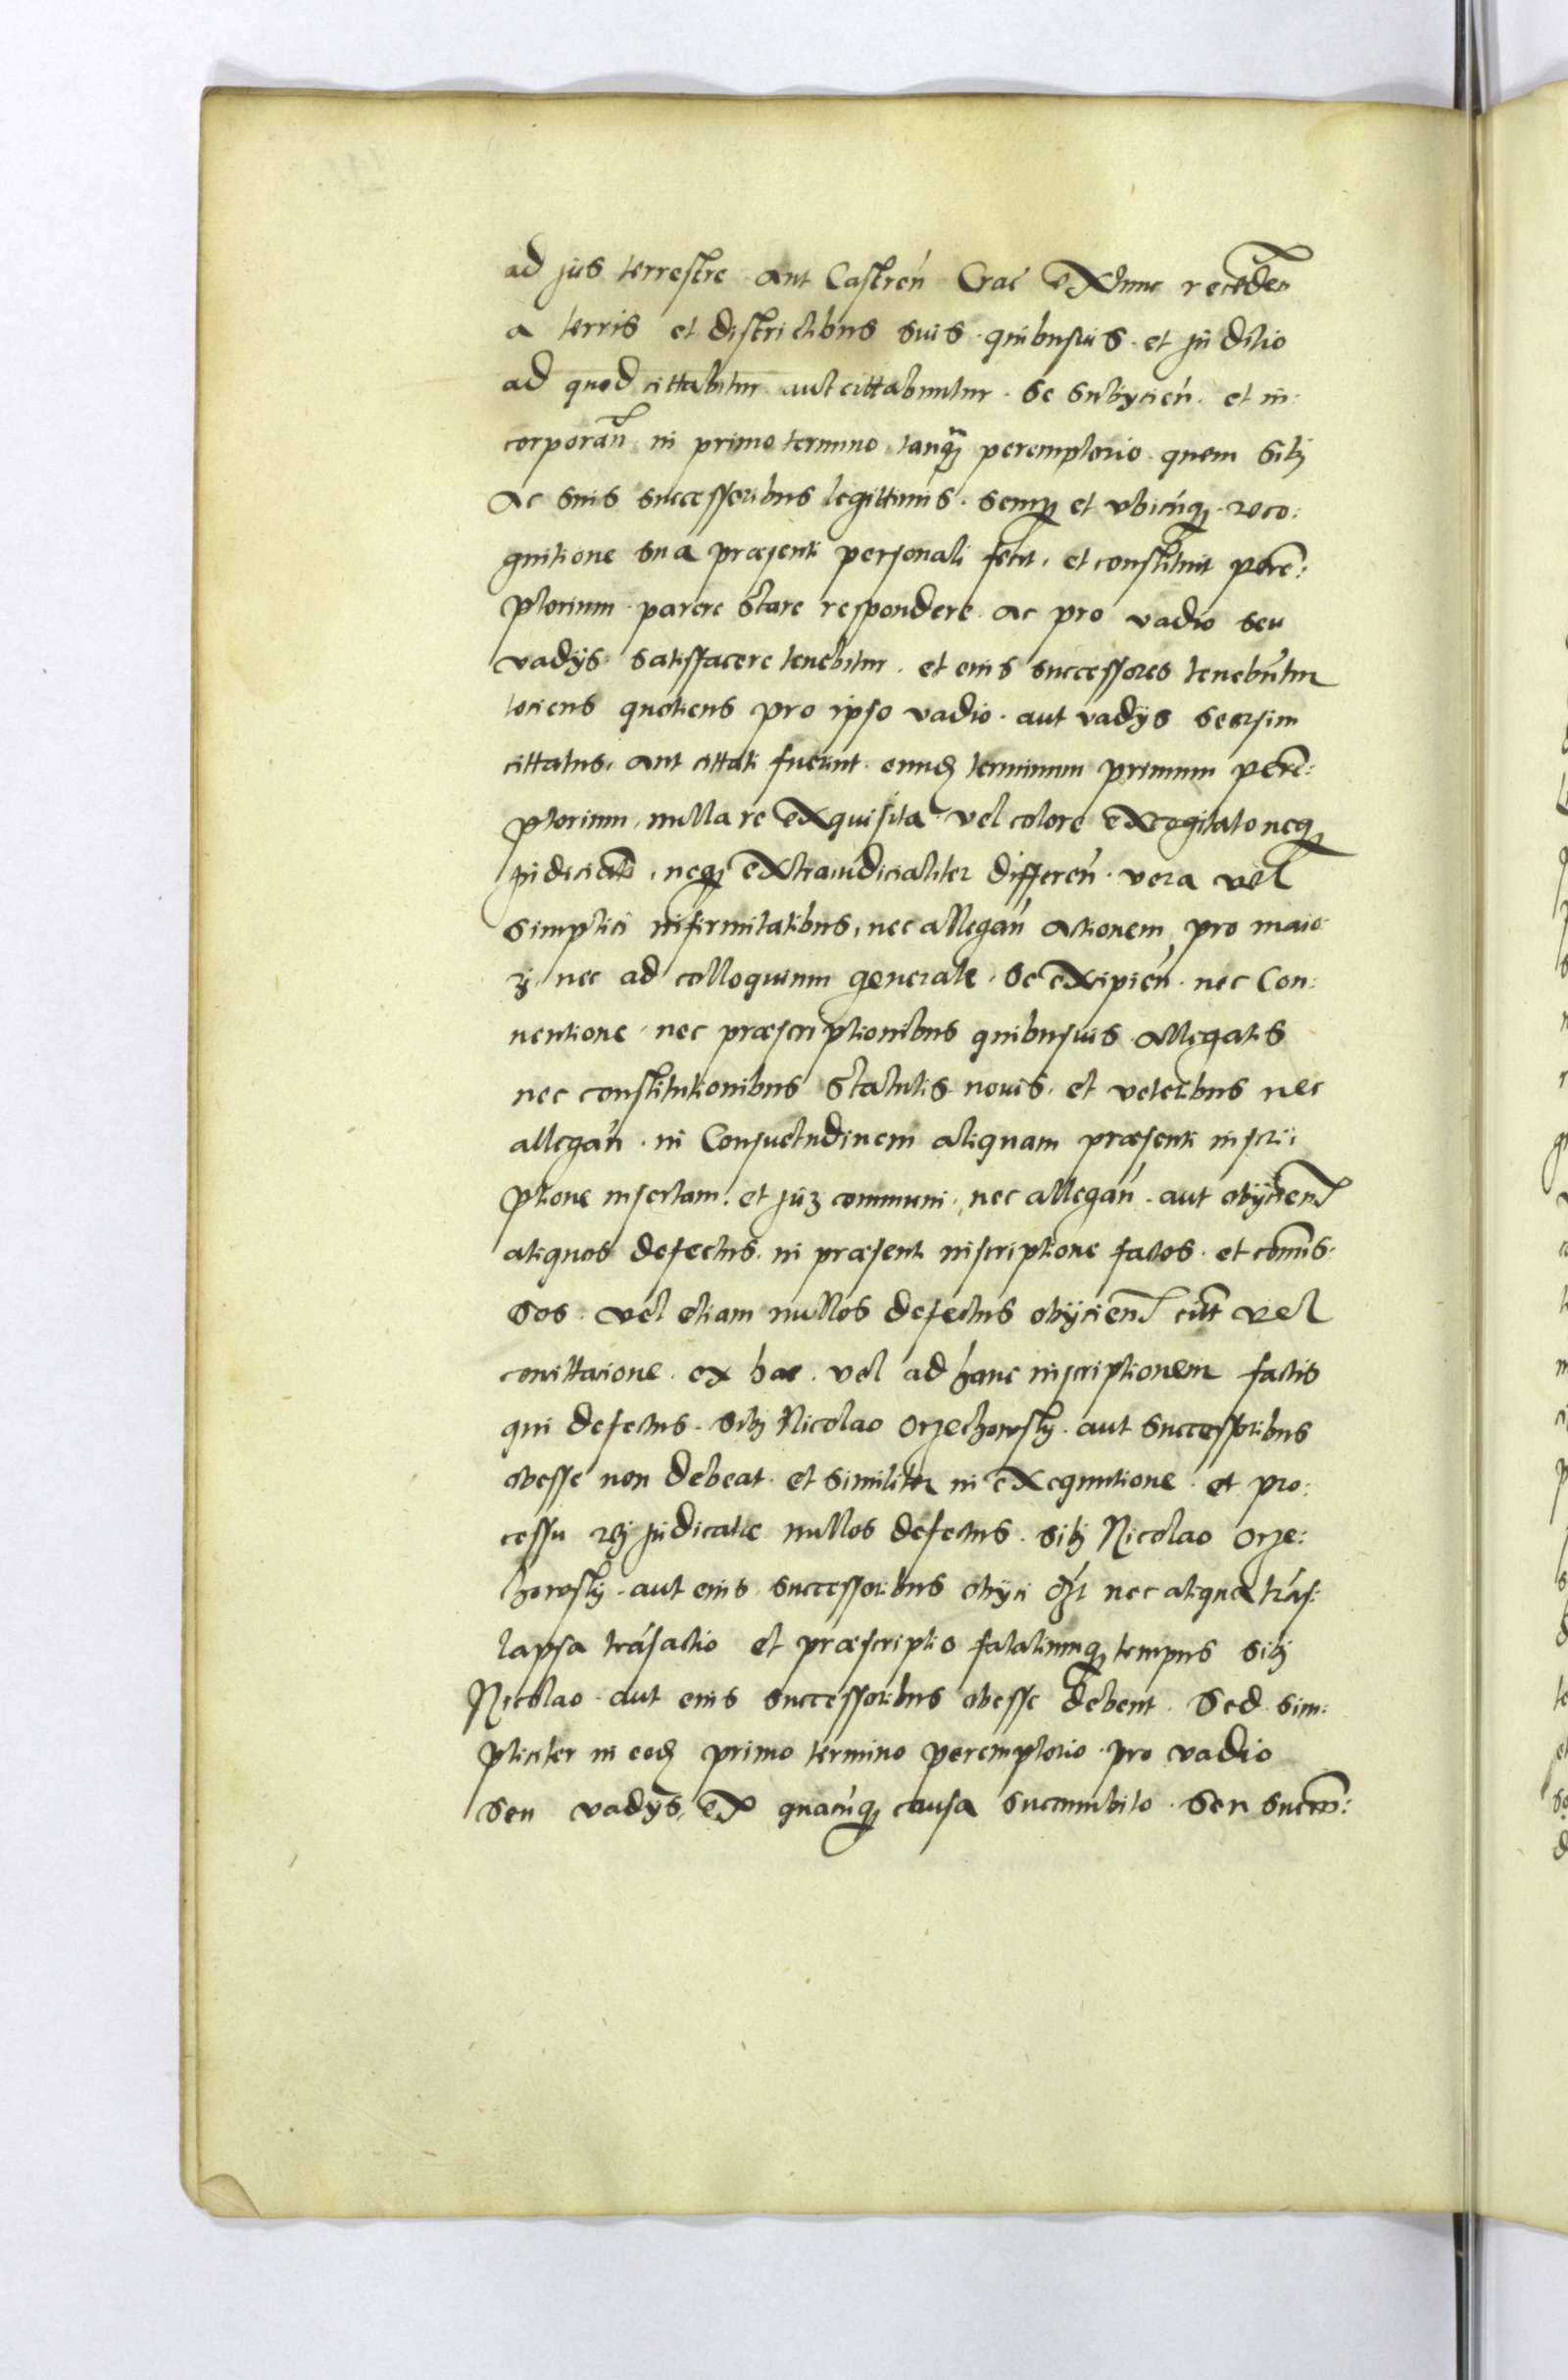 ad jus terrestre aut Castren̄ Crac̄ exnunc receden̄
a terris et districtibus suis quibusuis et juditio
ad quod cittabitur aut cittabuntur se subÿcien̄ et in:
corporan̄ in primo termino tanq̄ꝫ peremptorio quem sibi
Ac suis successoribus legittimis semꝑ et vbicūqꝫ reco:
gnitione sua præsenti personali fecit, et constituit perē:
ptorium parere stare respondere ac pro vadio seu
vadÿs satisfacere tenebitur et eius successores tenebūtur
tociens quotiens pro ipso vadio aut vadÿs seorsim
cittatus, aut cittati fuerint eundꝫ terminum primum perē:
ptorium, nulla re exquisita vel colore excogitato neqꝫ
judicialꝫ, neqꝫ extraiudicialiter differen̄ vera vel
simplici infirmitatibus, nec allegan̄ actionem pro maio
ri, nec ad colloquium generale se excipien̄ nec Con:
uentione nec præscriptionibus quibusuis allegatis
nec constitutionibus statutis nouis et veteribus nec
allegan̄ in Consuetudinem aliquam præsenti inscri:
ptione insertam, et juri communi, nec allegan̄ aut obÿcien̄
aliquos defectus in præsenti inscriptione factos et comis
sos vel etiam nullos defectus obÿcien̄ citt̄ vel
conittacione ex hac vel ad hanc inscriptionem factis
qui defectus sibi Nicolao Orzechowskÿ aut successoribus
obesse non debeat et similiter in exequutione et pro:
cessu rei judicatæ nullos defectus sibi Nicolao Orze:
howskÿ aut eius successoribus obÿci nec aliqua trās:
lapsa trāsactio et præscriptio fataliumqꝫ tempus sibi
Nicolao aut eius successoribus obesse debent Sed sim:
pliciter in eodꝫ primo termino peremptorio pro vadio
seu vadÿs, ex quacūqꝫ causa succumbito seu succū: